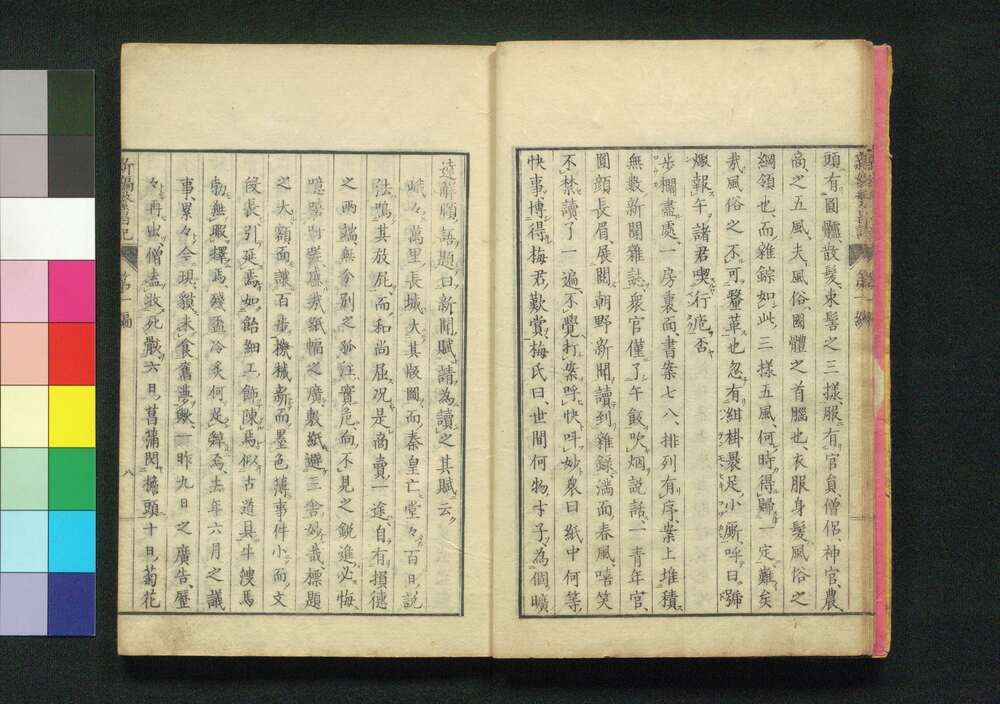 頭、有圓髗散髮束髻之三樣、服、有官員僧侶、神官、農
商、之五風、夫、風俗、國體之首腦也、衣服身髮、風俗之
綱領也、而雜錝如此、三樣五風、何時得歸一定、難矣
哉、風俗之不可釐革也、忽有紺褂褁足、小廝、呼曰、號
煺報午、諸君喫行庖否
步欄盡處、一房裏面、書案七八、排列有序、案上堆積
無數新聞雜誌、衆官僅了午飯、吹烟、說話、一青年官、
圓顏長眉、展閱朝野新聞、讀到雜錄、滿面春風、嘻笑
不禁、讀了一遍、不覺打案、呼快叫妙、衆曰、紙中何等
快事、博得梅君歎賞、梅氏曰、世間何物才子、為個曠
達癖順語、題曰新聞賦、請為讀之、其賦云
峨々萬里長城、大其版圖而秦皇亡、堂々百日說
法、鳴其放屁而和尚屈、况是商賣一途、自有損德
之兩端、無分別之
見之銳進、必悔
紙幅之廣、數紙避三舍、妙哉、標題
之大、額面讓百步、機械新而墨色薄、事件小而文
段長、引延焉、如飴細工、飾陳焉、似古道具、牛溲馬
勃、無暇擇焉、殘盃冷炙、何足辭焉、去年六月之議
事、累々今現、貘未食舊
一昨九日之廣告、屢
々再出、僧孟
死、散六日菖蒲閃簷頭、十日菊花
新編繁昌記
第一編
八